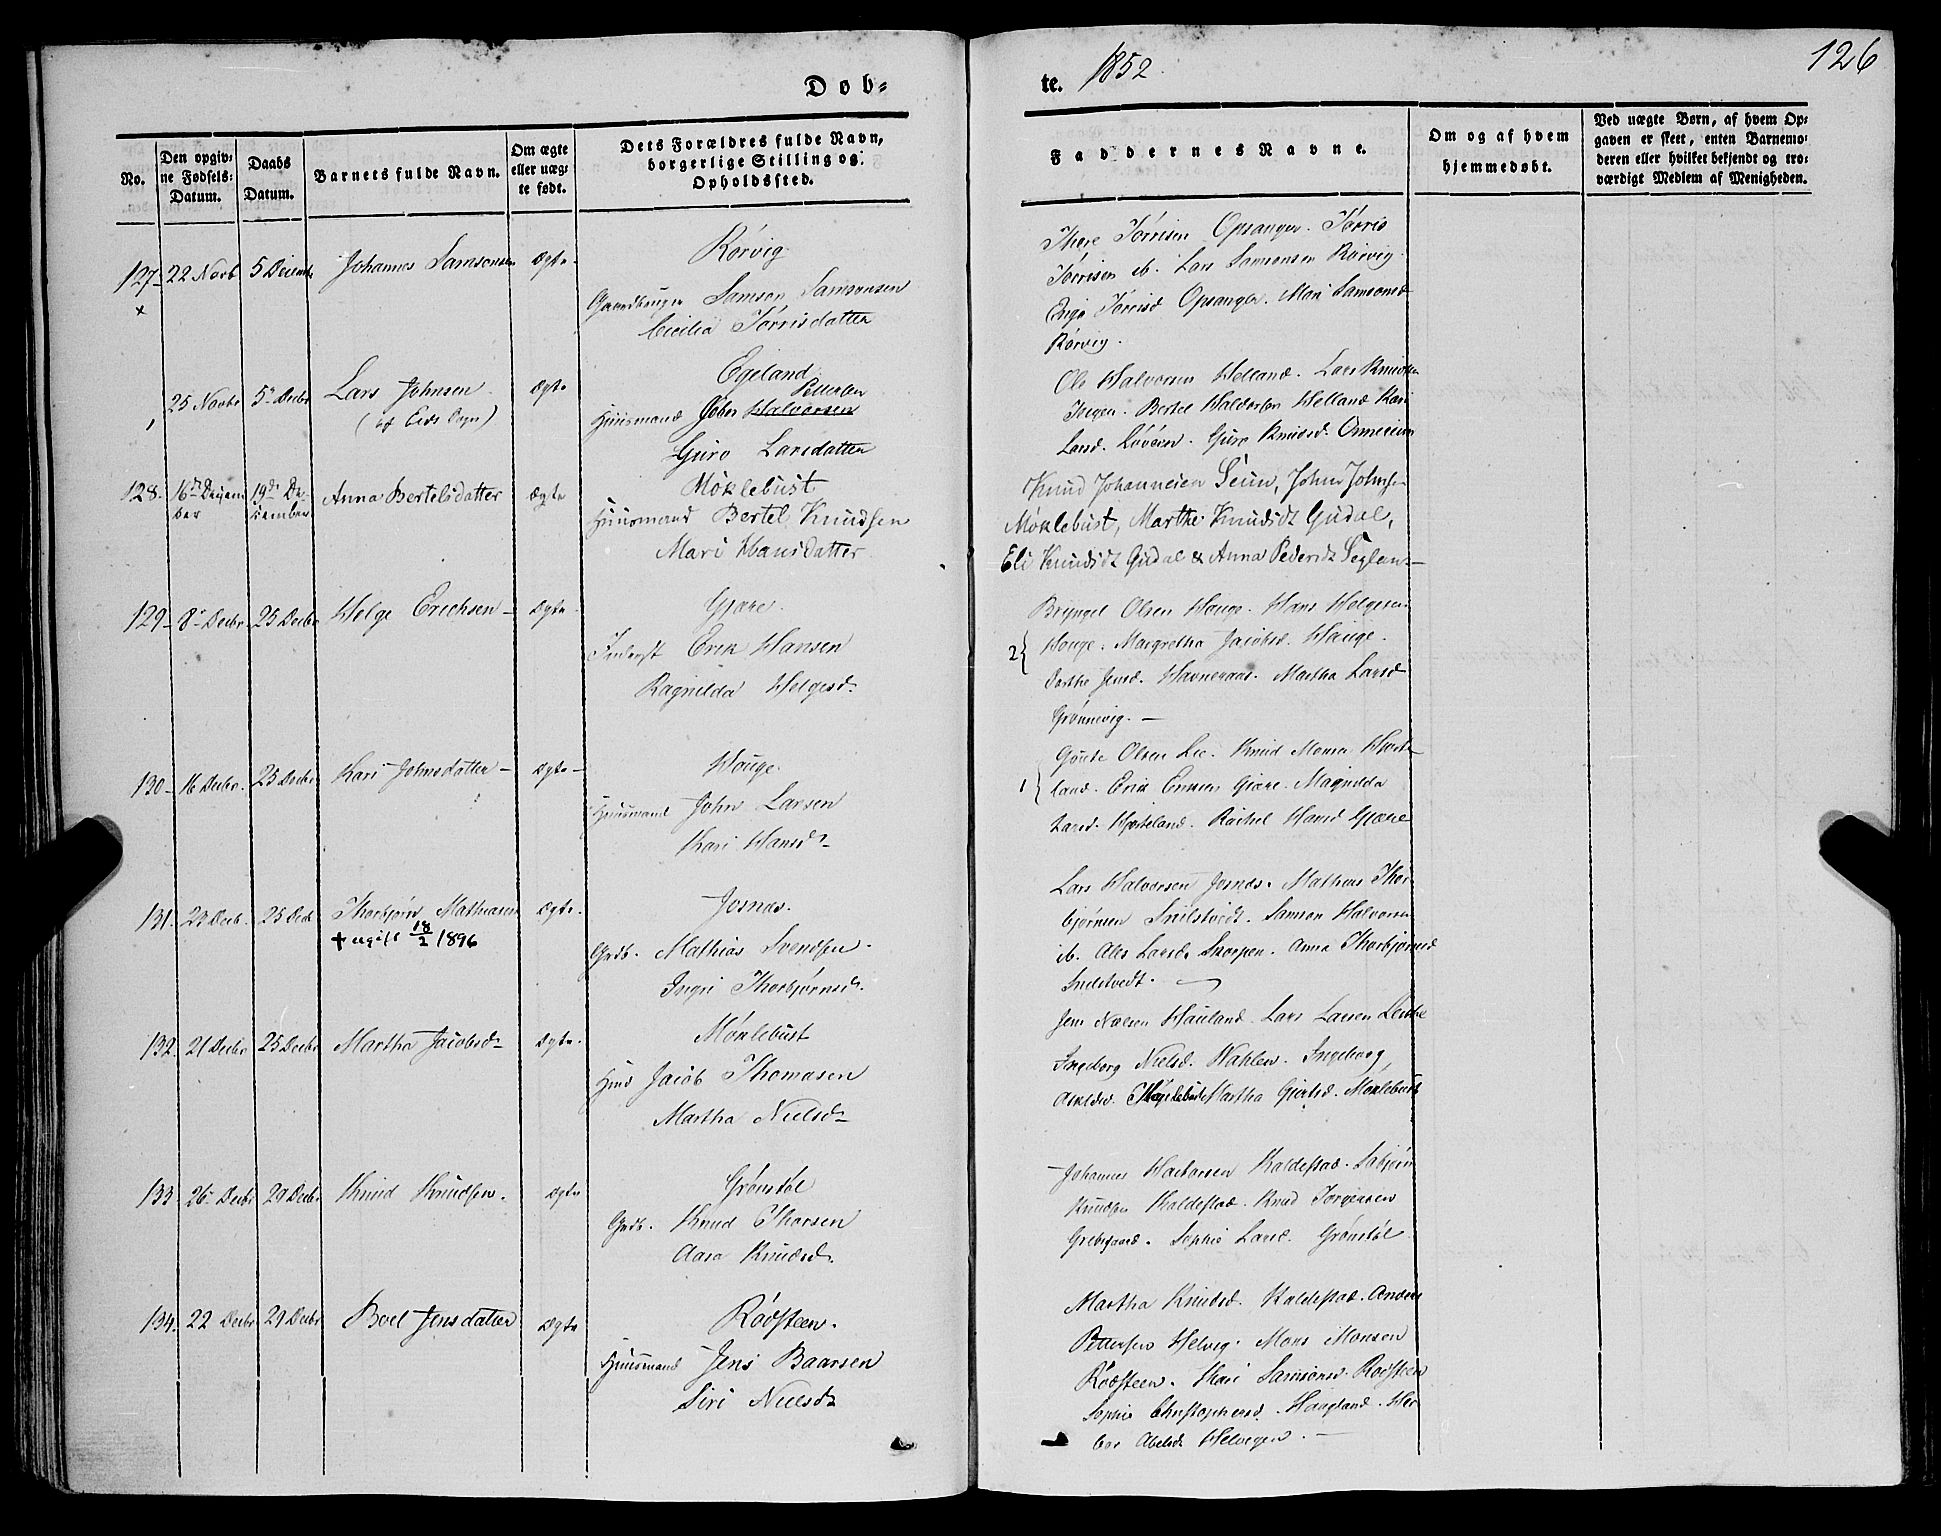 Døb=
te. 1852.
126
No.
Den opgiv=
ne Fødsels=
Datum.
Daabs
Datum.
Barnets fulde Navn.
Om ægte
eller uæg=
te født.
Dets Forældres fulde Navn,
borgerlige Stilling og
Opholdssted.
Faddernes Navne.
Om og af hvem
hjemmedøbt.
Ved uægte Børn, af hvem Op=
gaven er skeet, enten Barnemo=
deren eller hvilket bekjendt og tro=
værdigt Medlem af Menigheden.
127 22 Novb 5 Decemb Johannes Samsonsen Ægte. Rørvig
x
Gaardbruger Samson Samsonsen
Cicilia Tørrisdatter
Tørrisen Opsanger. Tørris
Tørrisen ib. Lars Samsonsen Rørvig.
Tørrisd Opsanger. Mari Samsonsd
Rørvig.
25 Novbr 5 Decbr Lars Johnsen Ægte Egeland
Pettersen
Huusmand John Halvorsen
Guro Larsdatter
Ole Halvorsen Helland. Lars Knudsen
Bertel Haldorsen Helland Kari
Larsd. Guro Knudsd.
128. 16de Decem 19de De- Anna Bertelsdatter Ægte Møklebust
ber cember
Huusmand Bertel Knudsen
Mari Hansdatter
Knud Johannesen Seim, John Johns-
Møklebust, Marthe Knudsdt Gudal,
Eli Knudsdt Gudal & Anna Pedersdt Seglem-
129- 8 Decbr 25 Decbr Helge Erichsen- Ægte Gjøre.
Inderst Erik Hansen
Ragnilda Helgesd.
Bryngel Olsen Houge. Hans Helgesen
2{ Houge. Margretha Jacobsd. Hauge.
Dorthe Jensd. Havneraas. Martha Larsd
Grønnevig. -
130- 16 Decbr. 25 Decbr Kari Johnsdatter- Ægte- Houge.
Huusmand John Larsen
Kari Hansd-
Olsen Lie. Knud Monsen
1} land. Erik Gjøre. Magnilda
Larsd. Hjorteland. Rachel Hansd Gjøre
131. 23 Decb. 25 Decb Thorbjørn Mathiasen Ægte. Josnæs.
+ ugift 18/2 1896
Gdb. Mathias Svendsen.
Ingri Thorbjørnsd.
Lars Halvorsen Josnæs. Mathias Thor
bjørnsen Snilstvedt. Samson Halvorsen
ib. Larsd. Skorpen. Anna Thorbjørnsd
Snilstvedt.
132. 21 Decbr 25 Decbr Martha Jacobsd- Ægte. Møklebust
Huus Jacob Thomasen
Martha Nielsd-
Jens Nielsen Hauland. Lars Larsen
Ingeborg Nielsd. Ingeborg
Martha Møklebust
133. 26 Decbr 29 Decbr Knud Knudsen. Ægte Grønstøl
Gdb. Knud Thorsen
Aasa Knudsd.
Johannes Kaldestad.
Knudsen Kaldestad. Knud Jørgensen
Sophie Larsd. Grønstøl
134. 22 Decbr 29 Decbr Boel Jensdatter Ægte Rødsteen.
Huusmand Jens Baarsen
Siri Nielsdt
Martha Knudsd. Kaldestad. Anders
Pettersen Helvig. Mons Monsen
Rødsteen. Kari Samsonsd. Rødsteen
Sophie Christophersd. Haagland. Her
bor Abelsdt Helvegen. -